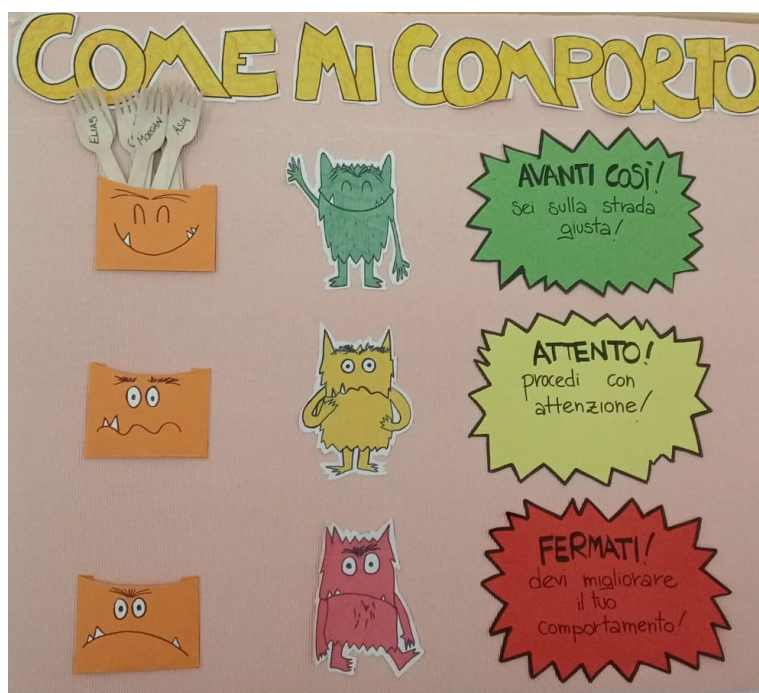 COME MI COMPORTO
ELIAS
MORGAN
ASIA
AVANTI COSÌ!
sei sulla strada
giusta!
ATTENTO!
procedi con
attenzione!
FERMATI!
devi migliorare
il tuo
comportamento!